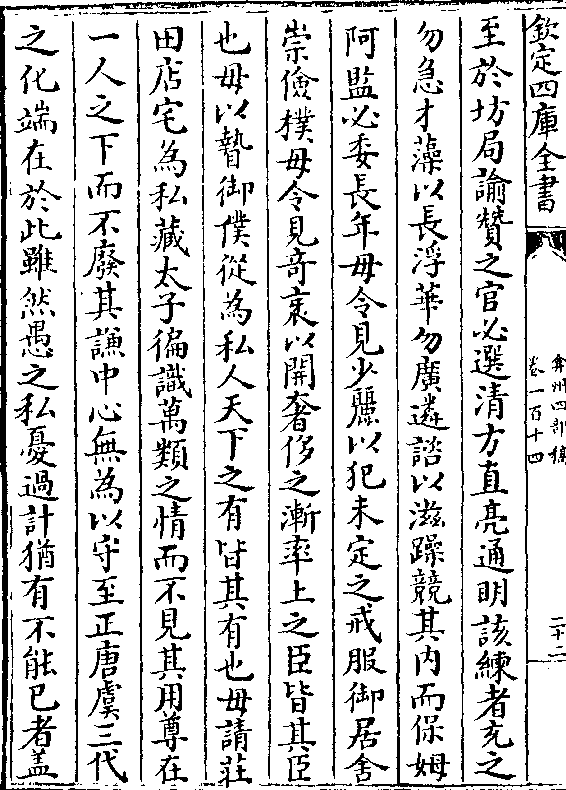 欽定四庫全書
弇州四部稿
卷一百十四
二十二
至於坊局諭贊之官必選清方直亮通明該練者充之
勿急才藻以長浮華勿廣遴諮以滋躁競其内而保姆
阿監必委長年毋令見少麗以犯未定之戒服御居舍
崇儉樸毋令見奇衺以開奢侈之漸率上之臣皆其臣
也毋以贄御僕從為私人天下之有皆其有也毋請莊
田店宅為私藏太子徧識萬類之情而不見其用尊在
一人之下而不廢其謙中心無為以守至正唐虞三代
之化端在於此雖然愚之私憂過計猶有不能已者盖